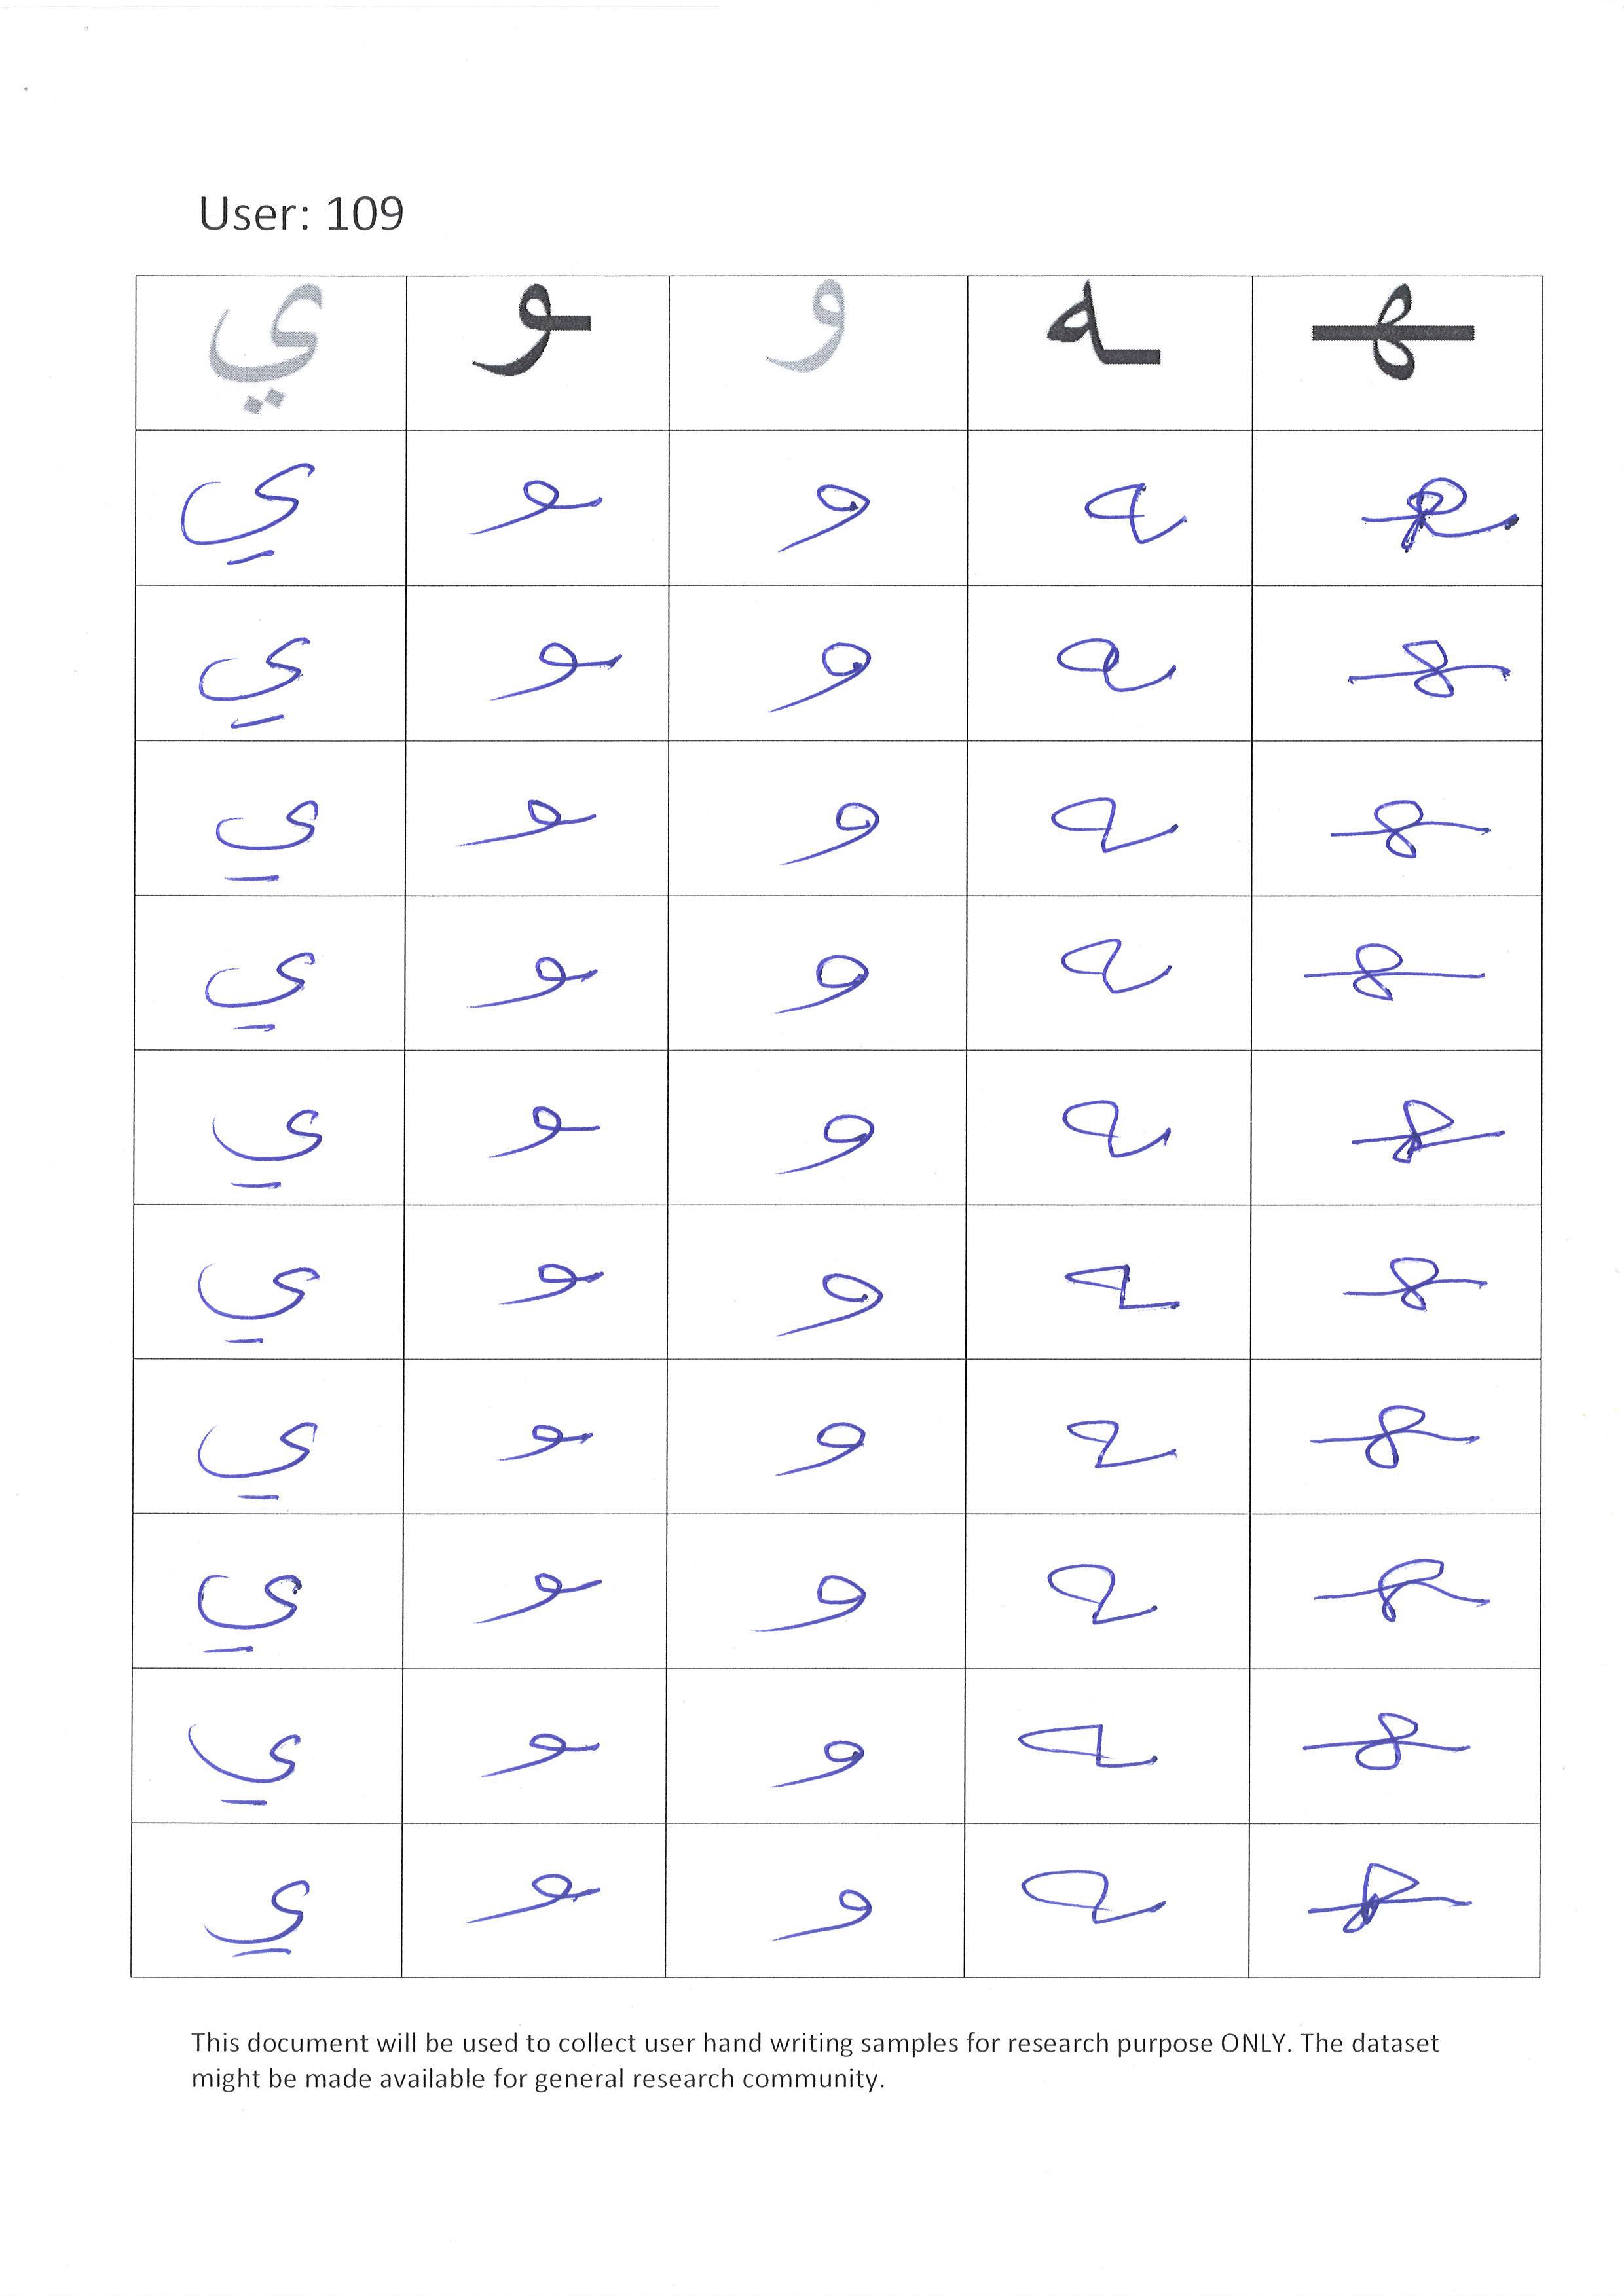 User: 109
ﻱ ـو و ـه ـهـ
ي ـو و ـه ـهـ
ي ـو و ـه ـهـ
ي ـو و ـه ـهـ
ي ـو و ـه ـهـ
ي ـو و ـه ـهـ
ي ـو و ـه ـهـ
ي ـو و ـه ـهـ
ي ـو و ـه ـهـ
ي ـو و ـه ـهـ
ي ـو و ـه ـهـ
This document will be used to collect user hand writing samples for research purpose ONLY. The dataset
might be made available for general research community.